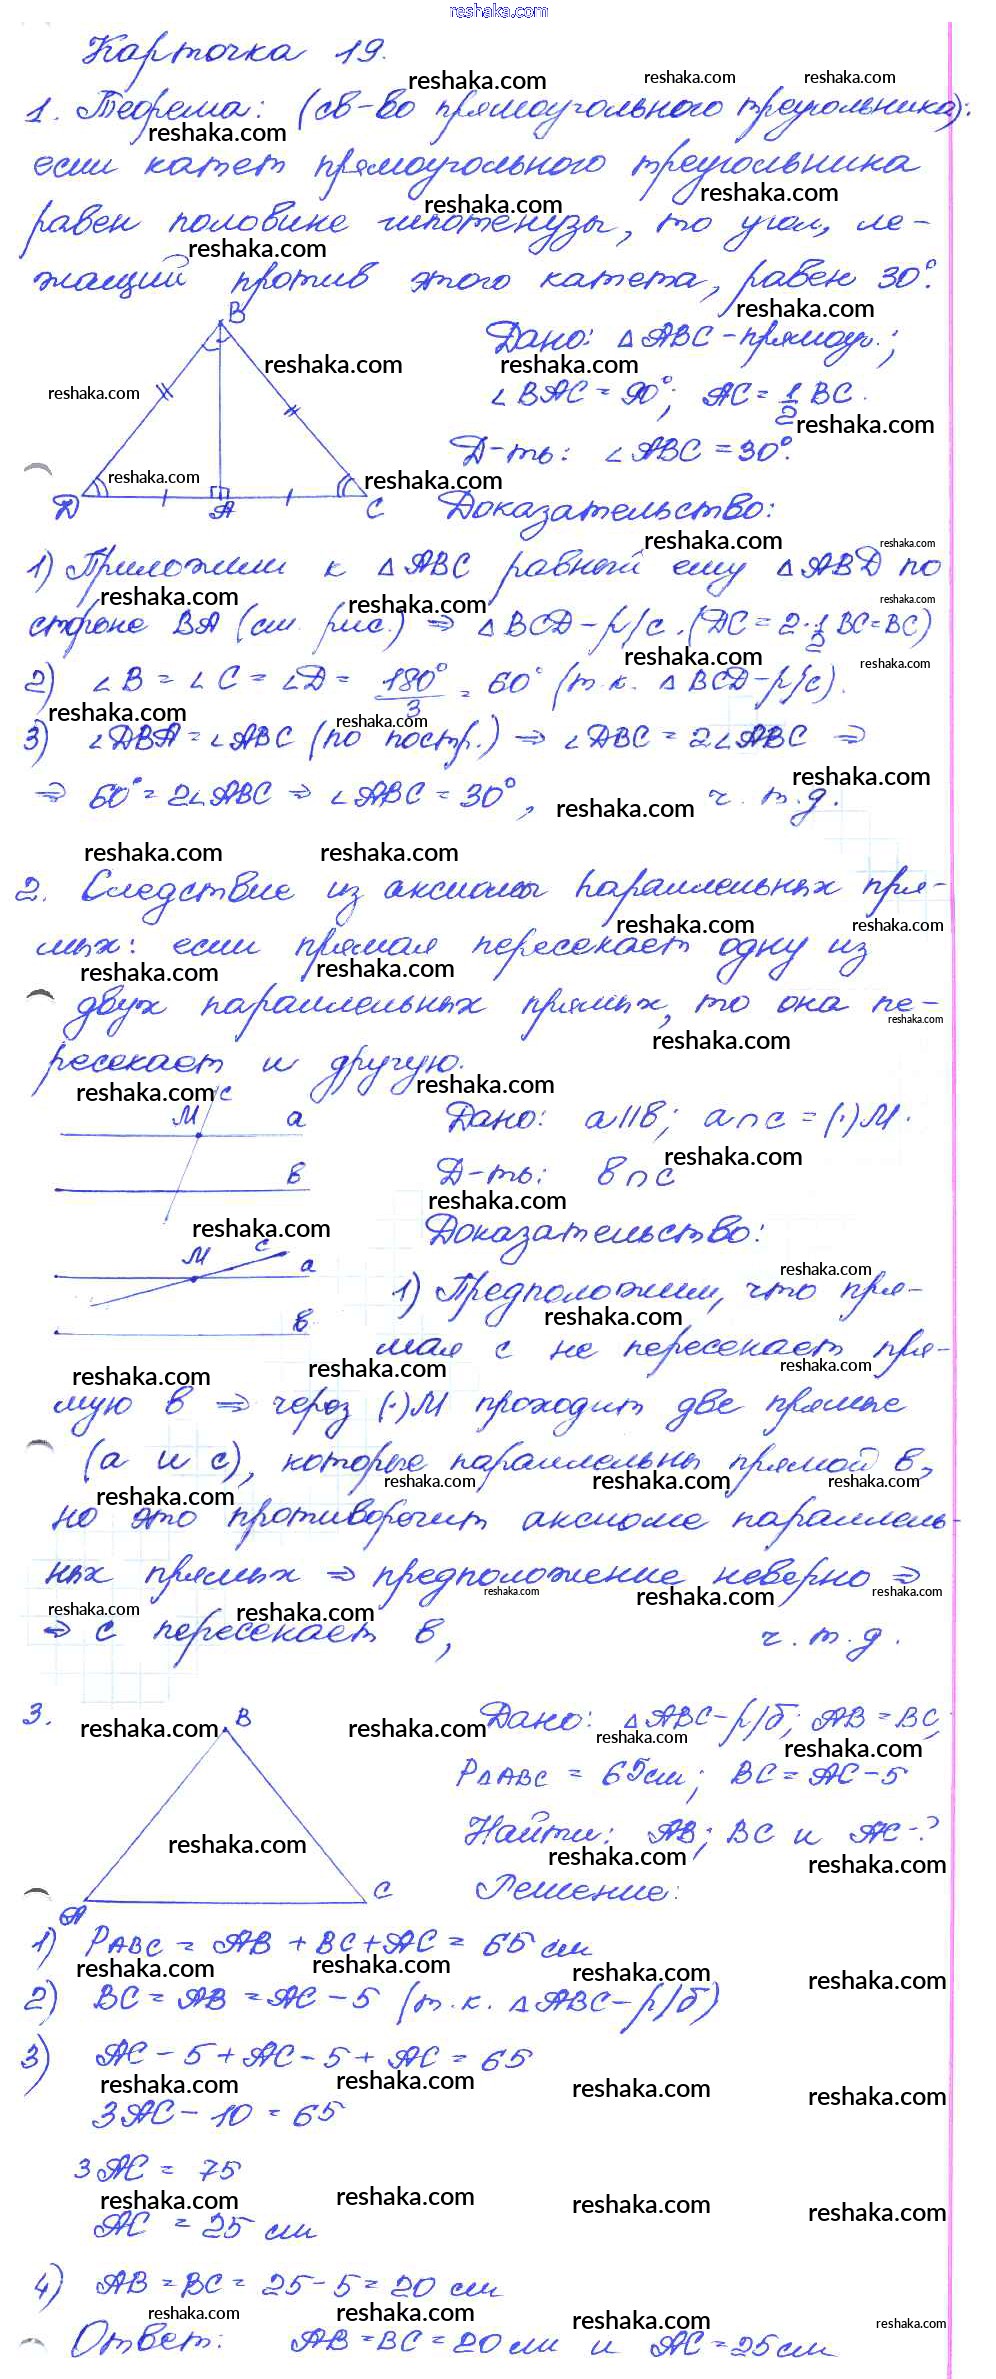 reshaka.com
Карточка 19.
1. Теорема: (св-во прямоугольного треугольника):
если катет прямоугольного треугольника
равен половине гипотенузы, то угол, ле-
жащий против этого катета, равен 30°.
B
Дано: △ABC - прямоуг.;
∠BAC = 90°; AC = 1/2 BC.
Д-ть: ∠ABC = 30°.
D A C
Доказательство:
1) Приложим к △ABC равный ему △ABD по
стороне BA (см. рис.) ⇒ △BCD - р/с. (DC = 2·1/2 BC = BC)
2) ∠B = ∠C = ∠D = 180°/3 = 60° (т.к. △BCD - р/с).
3) ∠DBA = ∠ABC (по постр.) ⇒ ∠DBC = 2∠ABC ⇒
⇒ 60° = 2∠ABC ⇒ ∠ABC = 30°, ч.т.д.
2. Следствие из аксиомы параллельных пря-
мых: если прямая пересекает одну из
двух параллельных прямых, то она пе-
ресекает и другую.
c
M a
Дано: a||в; a∩c = (·)M.
в
Д-ть: в∩c
Доказательство:
M c a
в
1) Предположим, что пря-
мая c не пересекает пря-
мую в ⇒ через (·)M проходит две прямые
(a и c), которые параллельны прямой в,
но это противоречит аксиоме параллель-
ных прямых ⇒ предположение неверно ⇒
⇒ c пересекает в, ч.т.д.
3.
B
Дано: △ABC - р/б; AB = BC;
P△ABC = 65см; BC = AC - 5
Найти: AB; BC и AC - ?
A C
Решение:
1) PABC = AB + BC + AC = 65 см
2) BC = AB = AC - 5 (т.к. △ABC - р/б)
3) AC - 5 + AC - 5 + AC = 65
3AC - 10 = 65
3AC = 75
AC = 25 см
4) AB = BC = 25 - 5 = 20 см
Ответ: AB = BC = 20 см и AC = 25 см